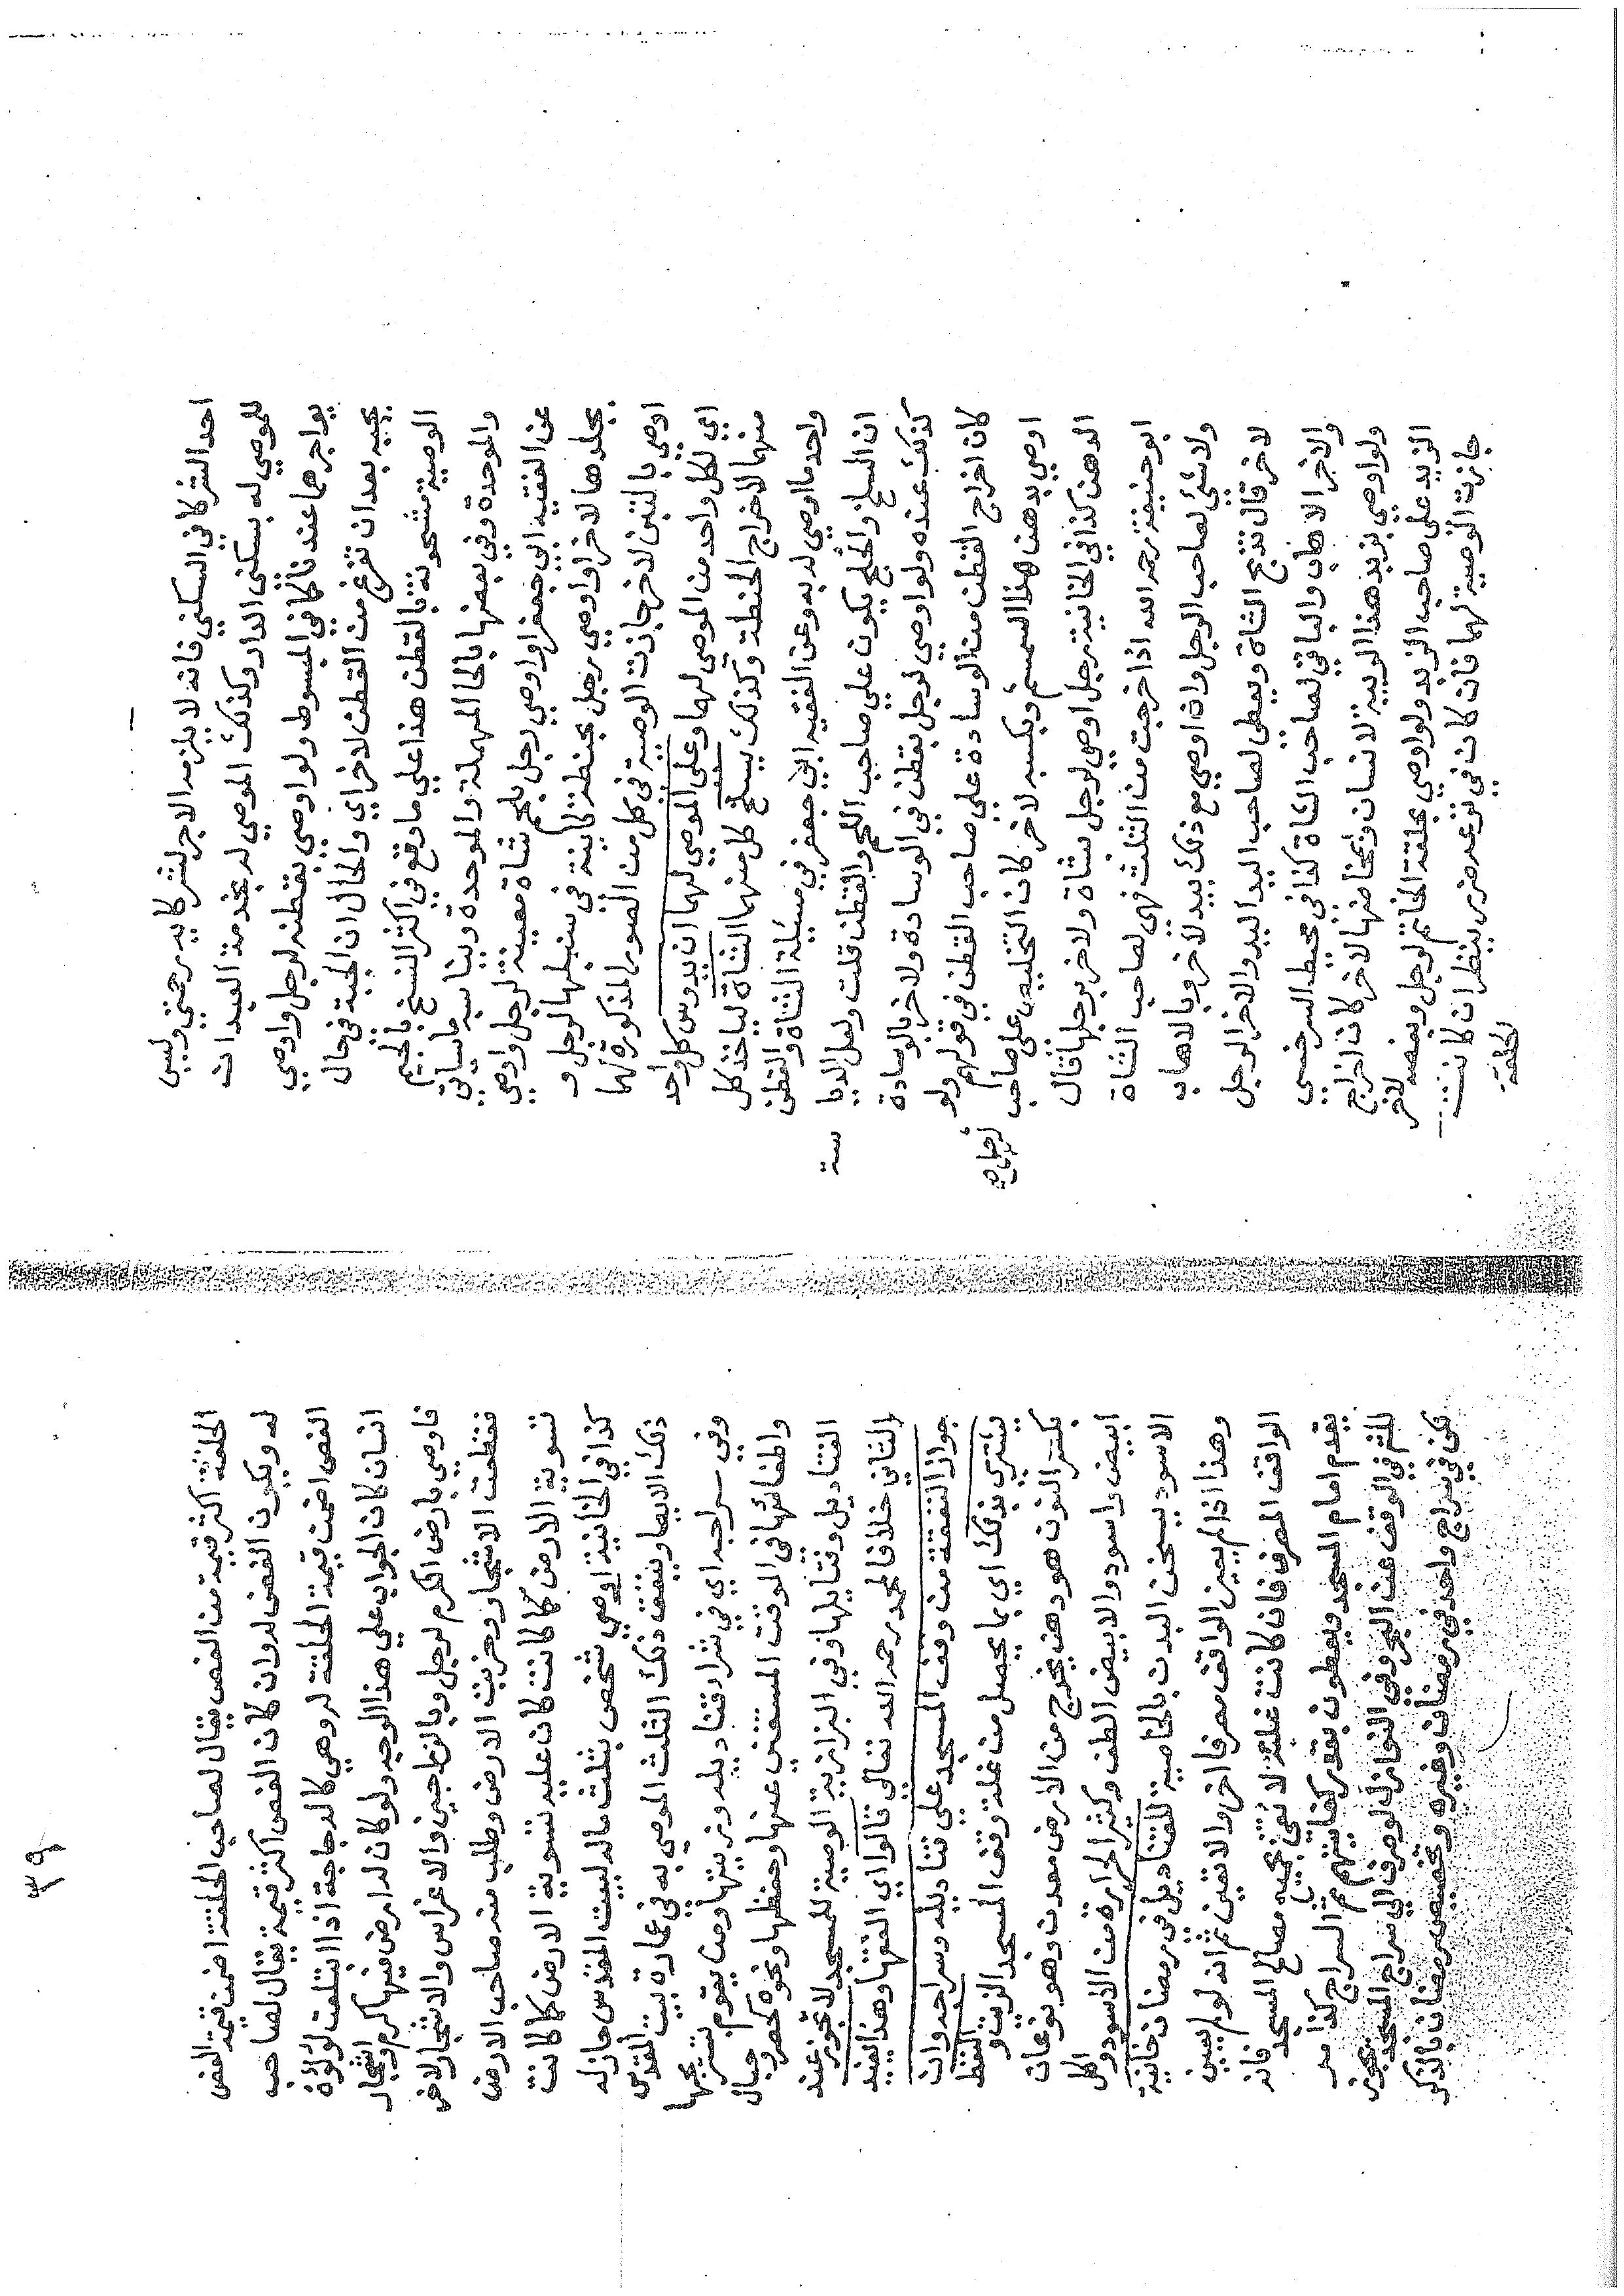 احد الشركا في السكني فانه لا يلزمه الاجر لشركايه رحمتي وليس
للموصي له بسكني الدار وكذلك الموصي له بخدمة العبد ان
يواجرهما عندنا كما في المبسوط ولو اوصي بقطنه لرجل واوصي
بحبه بعد ان تفرغ من القطن لاخر اي والحال ان الحبة في حال
الوصية مشحونة بالقطن هذا علي ما وقع في اكثر النسخ بالجيم
والموحدة وفي بعضها بالحا المهملة والموحدة ويناسبه ماسياتي
عن الفقيه ابي جعفر او اوصي رجل بلحم شاة معينة لرجل واوصي
بجلدها لاخر او اوصي رجل بحنطة كاينة في سنبلها لرجل و
اوصي بالتبن لاخر جازت الوصية في كل من الصور المذكورة لهما
اي لكل واحد من الموصي لهما وعلي الموصي لهما ان يدوس كل واحد
منهما لاخراج الحنطة وكذلك يسلخ كل منهما الشاة لياخذ كل
واحد ما اوصي له به وعن الفقيه ابي جعفر في مسئلة الشاة والقطن
ان السلخ والحلج يكون علي صاحب اللحم والقطن قلت ولعل الديا
سة
كذلك عنده ولو اوصي لرجل بقطن في الوسادة ولاخر بالوسادة
كان اخراج القطن من الوسادة علي صاحب القطن في قولهم ولو
اوصي بدهن هذا السمسم وبكسبه لاخر كان التخليص علي صاحب
لرجل صح
الدهن كذا في الخانية رجل اوصي لرجل بشاة ولاخر برجلها قال
ابو حنيفة رحمه الله اذا خرجت من الثلث فهي لصاحب الشاة
ولا شئ لصاحب الرجل وان اوصي مع ذلك بيد لاخر وبالاهاب
لاخر قال تذبح الشاة ويعطي لصاحب اليد اليد والاخر الرجل
والاخر الاهاب والباقي لصاحب الشاة كذا في محيط السرخسي
ولو اوصي بزبد هذا الوبية لانسان وبمخاضها لاخر كان اخراج
الزبد علي صاحب الزبد ولو اوصي بحلقة الخاتم لرجل وبفصه لاخر
جازت الوصية لهما فان كان في نزعه ضرر ينظر ان كانت
الحلقة
٣٩
الحلقة اكثر قيمة من الفص يقال لصاحب الحلقة اضمن قيمة الفص
له ويكون الفص له وان كان الفص اكثر قيمة يقال لصاحب
الفص اضمن قيمة الحلقة له وهي كالدجاجة اذا ابتلعت لؤلؤة
انسان كان الجواب علي هذا الوجه ولو كان له ارض فيها كرم واشجار
فاوصي بارض الكرم لرجل وبالزراجين والاغراس والاشجار لاخر
فقطعت الاشجار وخربت الارض وطلب منه صاحب الارض
تسوية الارض كما كانت كان عليه تسوية الارض كما كانت
كذا في الخانية اوصي شخص بثلث ماله لبيت المقدس جاز له
ذلك الايصا وينفق ذلك الثلث الموصي به في عمارة بيت المقدس
وفي سراجه اي في شرا قناديله وزيتها ومن يقوم بتسريجها
واطفائها في الوقت المستغني عنها وحفظها ونحوه كحصر وحبال
القناديل وفتايلها وفي البزازية الوصية للمسجد لا تجوز عند
الثاني خلافا لمحمد رحمه الله تعالي قالوا اي الفقها وهذا يفيد
جواز النفقة من وقف المسجد علي قناديله وسراجه وان
يشتري بذلك اي بما يحصل من غلة وقف المسجد الزيت و النفط
بكسر النون هو دهن يخرج من الارض معدن وهو نوعان
ابيض واسود والابيض الطف وكثير الحرارة من الاسود واكل
الاسود يسخن البدن بالخاصية للقناديل في رمضان خانية
وهذا اذا لم يعين الواقف مصرفا اخر والا تعين ثم انه لو لم يبين
الواقف المصرف فان كانت غلته لا تفي بجميع مصالح المسجد فانه
يقدم امام المسجد ويعطون بقدر كفايتهم ثم السراج كذا مر
للمص في الوقف عن البحر وفي النوازل لو صرف الي سراج المسجد يجوز
لكن في سراج واحد في رمضان وغيره وتخصيص رمضان بالذكر